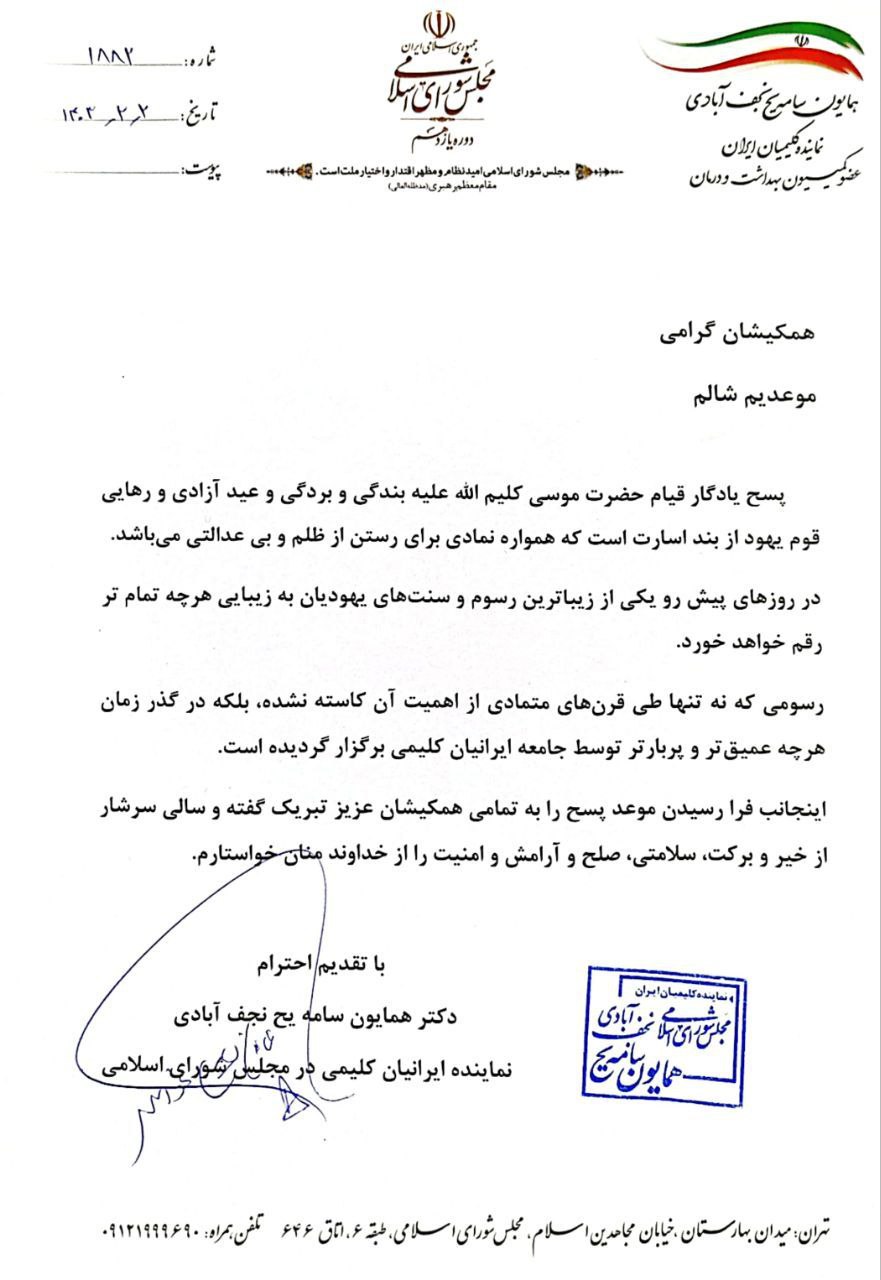 جمهوری اسلامی ایران
مجلس شورای اسلامی
دوره یازدهم
مجلس شورای اسلامی امید نظام و مظهر اقتدار و اختیار ملت است.
مقام معظم رهبری (مدظله العالی)
همایون سامه یح نجف آبادی
نماینده کلیمیان ایران
عضو کمیسیون بهداشت و درمان
شماره: ۱۸۸۲
تاریخ: ۱۴۰۳-۲-۲
پیوست:
همکیشان گرامی
موعدیم شالم
پسح یادگار قیام حضرت موسی کلیم الله علیه بندگی و بردگی و عید آزادی و رهایی
قوم یهود از بند اسارت است که همواره نمادی برای رستن از ظلم و بی عدالتی می‌باشد.
در روزهای پیش رو یکی از زیباترین رسوم و سنت‌های یهودیان به زیبایی هرچه تمام تر
رقم خواهد خورد.
رسومی که نه تنها طی قرن‌های متمادی از اهمیت آن کاسته نشده، بلکه در گذر زمان
هرچه عمیق‌تر و پربارتر توسط جامعه ایرانیان کلیمی برگزار گردیده است.
اینجانب فرا رسیدن موعد پسح را به تمامی همکیشان عزیز تبریک گفته و سالی سرشار
از خیر و برکت، سلامتی، صلح و آرامش و امنیت را از خداوند منان خواستارم.
با تقدیم احترام
دکتر همایون سامه یح نجف آبادی
نماینده ایرانیان کلیمی در مجلس شورای اسلامی
نماینده کلیمیان ایران
مجلس شورای اسلامی
نجف آبادی
همایون سامه یح
تهران: میدان بهارستان، خیابان مجاهدین اسلام، مجلس شورای اسلامی، طبقه ۶، اتاق ۶۴۶ تلفن همراه: ۰۹۱۲۱۹۹۹۶۹۰